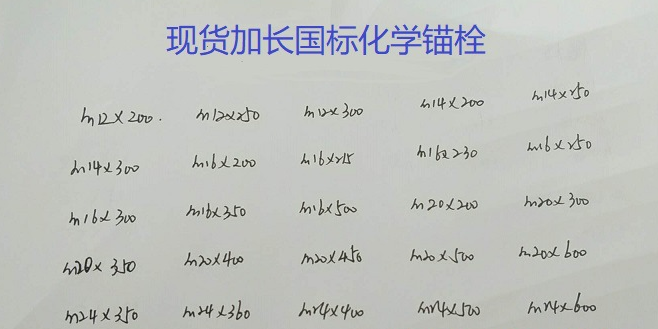 现货加长国标化学锚栓
m12×200. m12×250 m12×300 m14×200 m14×250
m14×300 m16×200 m16×215 m16×230 m16×250
m16×300 m16×350 m16×500 m20×200 m20×300
m20×350 m20×400 m20×450 m20×500 m20×600
m24×350 m24×360 m24×400 m24×500 m24×600